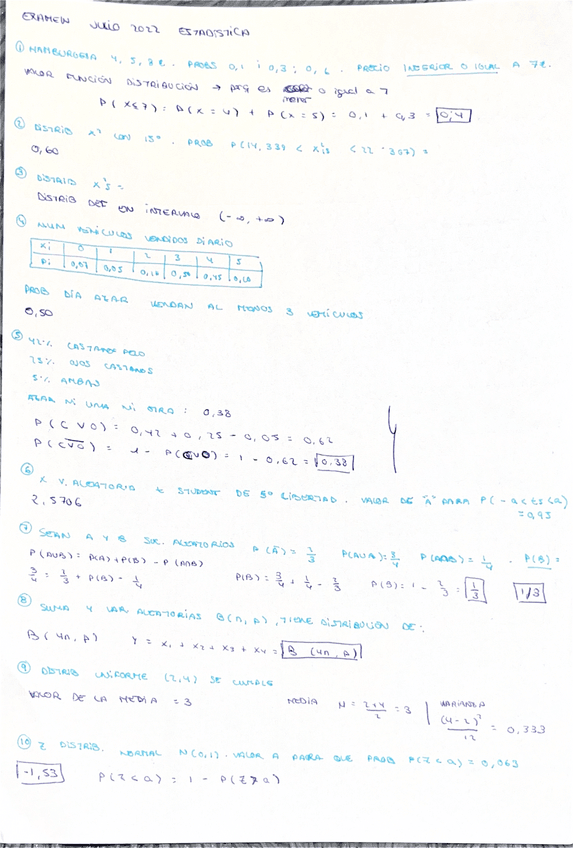 EXAMEN JULIO 2022 ESTADISTICA
① HAMBURGESA 4, 5, 8 €. PROBS 0,1 ; 0,3 ; 0,6. PRECIO INFERIOR O IGUAL A 7€.
VALOR FUNCIÓN DISTRIBUCIÓN → prq es menor o igual a 7
P(X≤7) = P(X = 4) + P(X = 5) = 0,1 + 0,3 = 0,4
② DISTRIB X² CON 15º. PROB P(14,339 < X²15 < 22,307) =
0,60
③ DISTRIB X²5 =
DISTRIB DEF EN INTERVALO (-∞, +∞)
④ NUM VEHÍCULOS VENDIDOS DIARIO
Xi 0 1 2 3 4 5
Pi 0,07 0,05
PROB DÍA AZAR VENDAN AL MENOS 3 VEHÍCULOS
0,50
⑤ 42% CASTAÑO PELO
25% OJOS CASTAÑOS
5% AMBAS
AZAR NI UNA NI OTRA : 0,38
P(C∪O) = 0,42 + 0,25 - 0,05 = 0,62
= 1 - P(C∪O) = 1 - 0,62 = 0,38
⑥ X V. ALEATORIA t STUDENT DE 5º LIBERTAD. VALOR DE "A" PARA P(-a<t5<a)
= 0,95
2,5706
⑦ SEAN A Y B SUC. ALEATORIOS P(Ā) = 2/3 P(AUB) = 3/4 P(A∩B) = 1/4. P(B) =
P(AUB) = P(A) + P(B) - P(A∩B)
3/4 = 1/3 + P(B) - 1/4 P(B) = 3/4 + 1/4 - 1/3 P(B) = 1 - 2/3 = 1/3 1/3
⑧ SUMA 4 VAR ALEATORIAS B(n, p), TIENE DISTRIBUCIÓN DE:
B(4n, p) Y = X1 + X2 + X3 + X4 = B(4n, p)
⑨ DISTRIB UNIFORME (2,4) SE CUMPLE
VALOR DE LA MEDIA = 3 MEDIA N = 2+4/2 = 3 | VARIANZA (4-2)²/12 = 0,333
⑩ Z DISTRIB. NORMAL N(0,1). VALOR A PARA QUE PROB P(Z<a) = 0,063
-1,53 P(Z<a) = 1 - P(Z≥a)